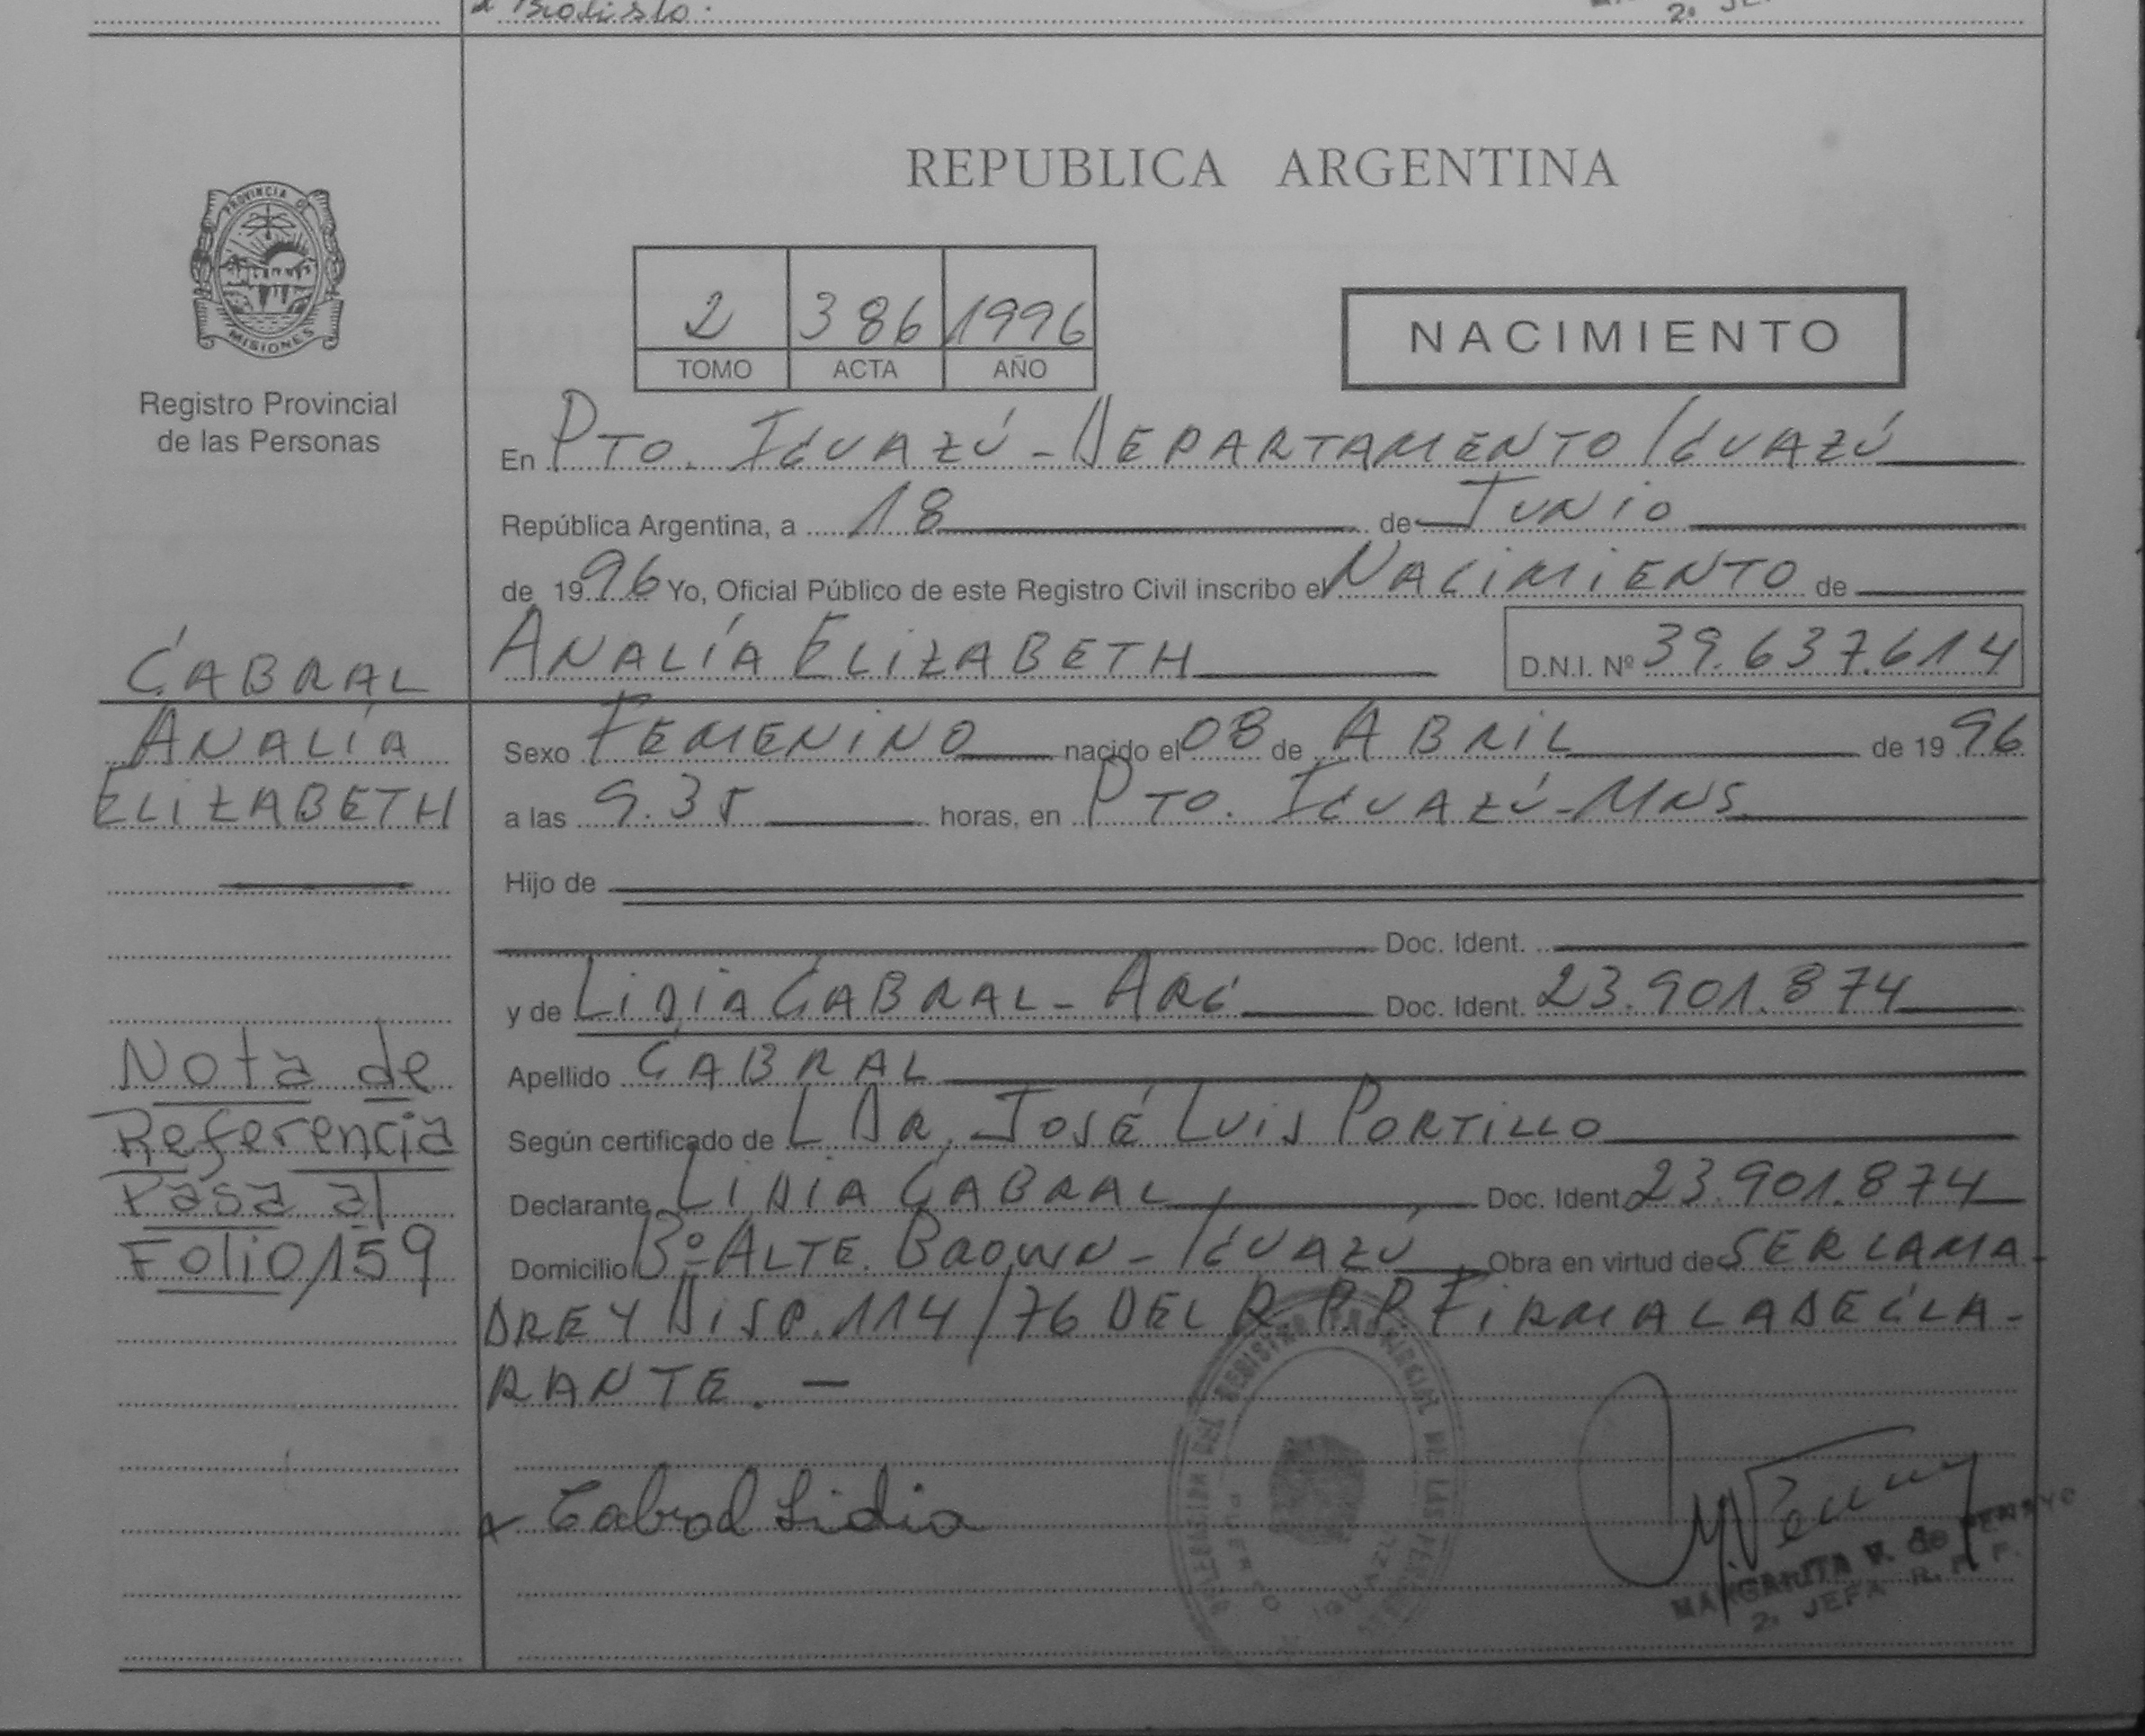 2º JE
PROVINCIA DE
MISIONES
Registro Provincial
de las Personas
REPUBLICA ARGENTINA
2 386 1996
TOMO ACTA AÑO
NACIMIENTO
En PTO. IGUAZÚ - DEPARTAMENTO IGUAZÚ
República Argentina, a 18 de JUNIO
de 1996 Yo, Oficial Público de este Registro Civil inscribo el NACIMIENTO de
ANALÍA ELIZABETH D.N.I. Nº 39.637.614
CABRAL
ANALÍA
ELIZABETH
Sexo FEMENINO nacido el 08 de ABRIL de 1996
a las 9.35 horas, en PTO. IGUAZÚ - MNS.
Hijo de
Doc. Ident.
y de LIDIA CABRAL - ARG Doc. Ident. 23.901.874
Apellido CABRAL
Según certificado de L DR. JOSÉ LUIS PORTILLO
Declarante LIDIA CABRAL Doc. Ident. 23.901.874
Domicilio Bº ALTE. BROWN - IGUAZÚ Obra en virtud de SER LA MA-
DRE Y DISP. 114/76 DEL R.P.P. FIRMA LA DECLA-
RANTE. -
Nota de
Referencia
Pasa al
Folio 159
Cabral Lidia
REGISTRO PROVINCIAL DE LAS PERSONAS
PUERTO IGUAZU
MARGARITA V. de PENAYO
2º JEFA R. P. P.